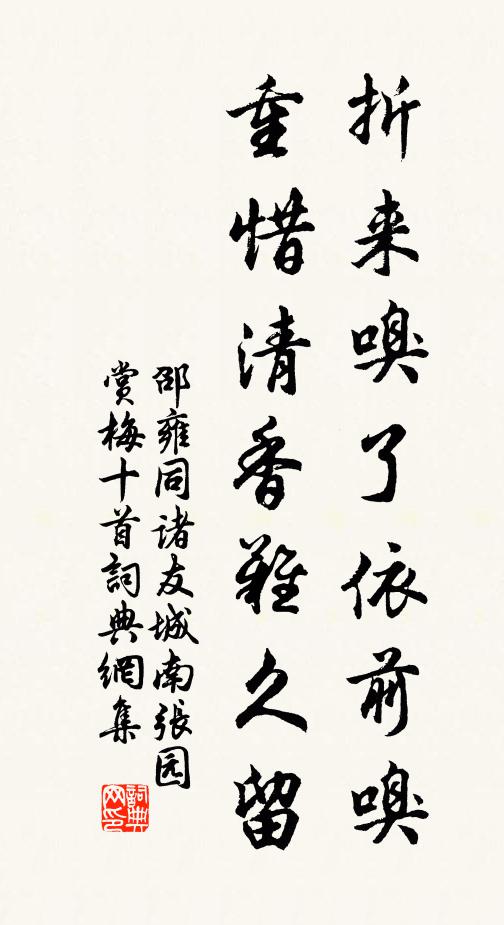 折来嗅了依前嗅
重惜清香難久留
邵雍同诸友城南張园
赏梅十首詞典網集
詞典网印